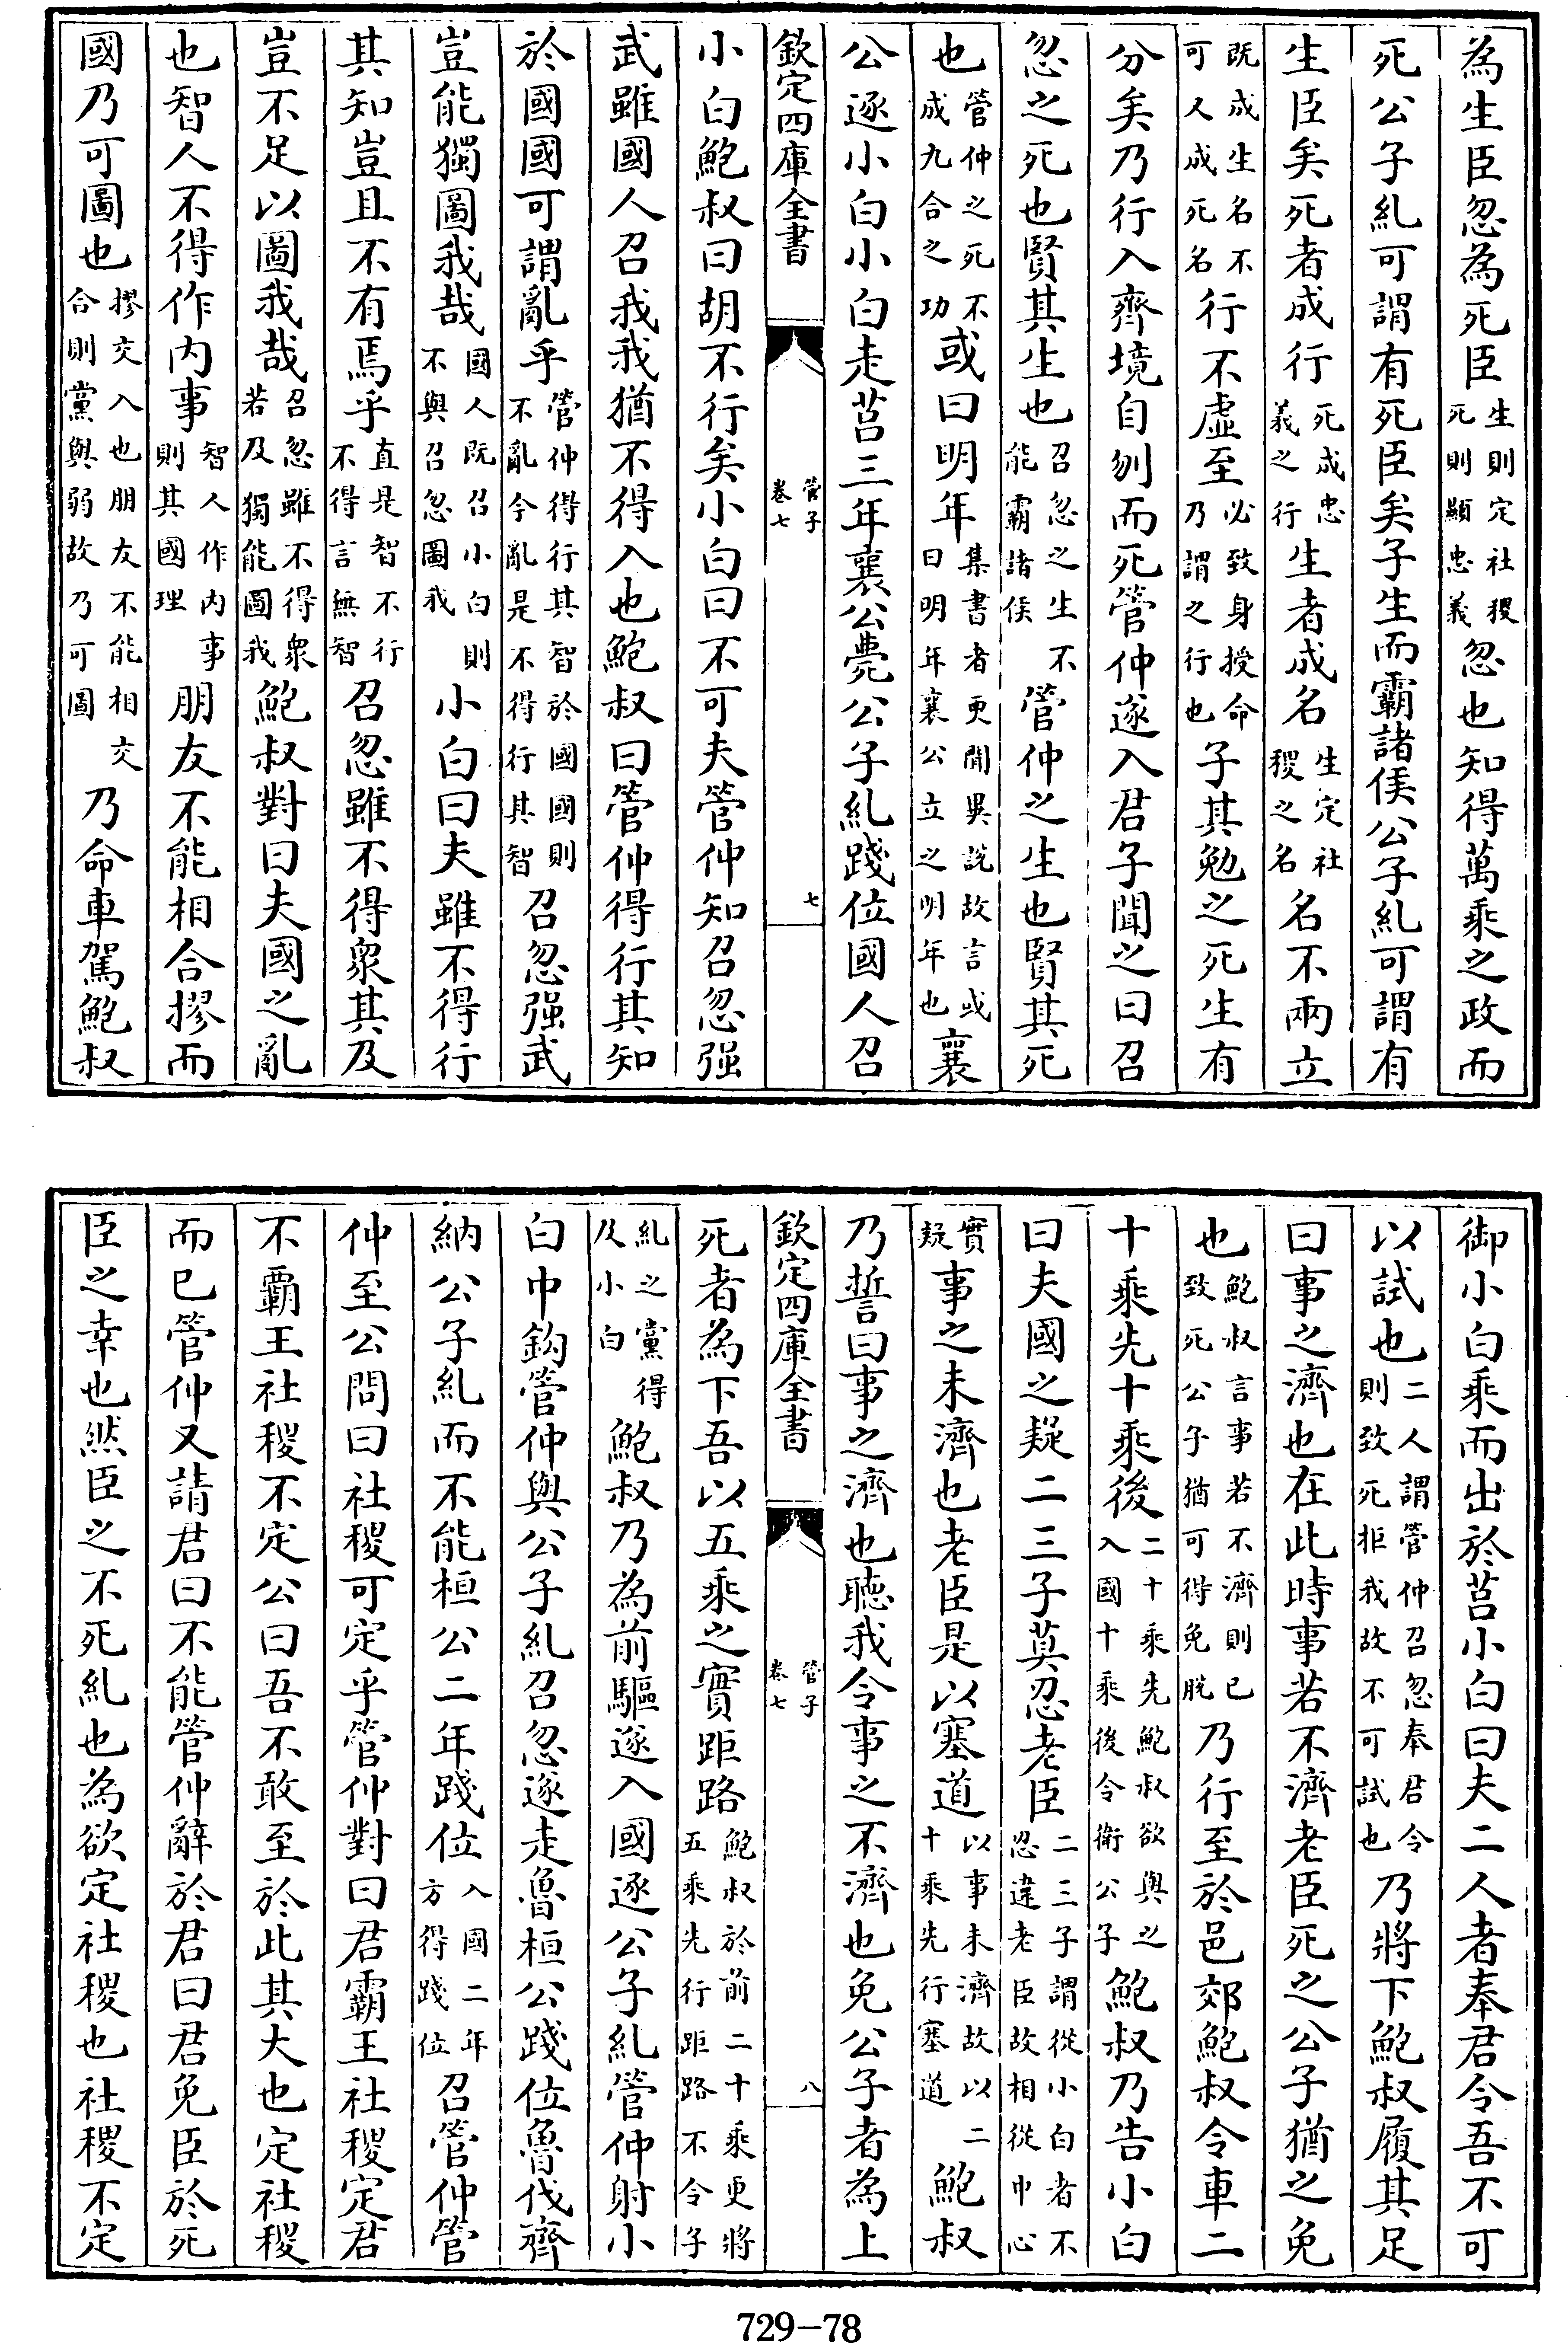 為生臣忽為死臣生則定社稷死則顯忠義忽也知得萬乘之政而
死公子糺可謂有死臣矣子生而霸諸侯公子糺可謂有
生臣矣死者成行死成忠義之行生者成名生定社稷之名名不兩立
既成生名不可又成死名行不虛至必致身授命乃謂之行也子其勉之死生有
分矣乃行入齊境自刎而死管仲遂入君子聞之曰召
忽之死也賢其生也召忽之生不能霸諸侯管仲之生也賢其死
也管仲之死不成九合之功或曰明年集書者更聞異說故言或曰明年襄公立之明年也襄
公逐小白小白走莒三年襄公薨公子糺踐位國人召
欽定四庫全書 管子 卷七 七
小白鮑叔曰胡不行矣小白曰不可夫管仲知召忽强
武雖國人召我我猶不得入也鮑叔曰管仲得行其知
於國國可謂亂乎管仲得行其智於國國則不亂今亂是不得行其智召忽强武
豈能獨圖我哉國人既召小白則不與召忽圖我小白曰夫雖不得行
其知豈且不有焉乎直是智不行不得言無智召忽雖不得衆其及
豈不足以圖我哉召忽雖不得衆若及獨能圖我鮑叔對曰夫國之亂
也智人不得作內事智人作內事則其國理朋友不能相合摎而
國乃可圖也摎交入也朋友不能相交合則黨與弱故乃可圖乃命車駕鮑叔
御小白乘而出於莒小白曰夫二人者奉君令吾不可
以試也二人謂管仲召忽奉君令則致死拒我故不可試也乃將下鮑叔履其足
曰事之濟也在此時事若不濟老臣死之公子猶之免
也鮑叔言事若不濟則已致死公子猶可得免脫乃行至於邑郊鮑叔令車二
十乘先十乘後二十乘先鮑叔欲與之入國十乘後令衛公子鮑叔乃告小白
曰夫國之疑二三子莫忍老臣二三子謂從小白者不忍違老臣故相從中心
實疑事之未濟也老臣是以塞道以事未濟故以二十乘先行塞道鮑叔
乃誓曰事之濟也聽我令事之不濟也免公子者為上
欽定四庫全書 管子 卷七 八
死者為下吾以五乘之實距路鮑叔於前二十乘更將五乘先行距路不令子
糺之黨得及小白鮑叔乃為前驅遂入國逐公子糺管仲射小
白中鈎管仲與公子糺召忽遂走魯桓公踐位魯伐齊
納公子糺而不能桓公二年踐位入國二年方得踐位召管仲管
仲至公問曰社稷可定乎管仲對曰君霸王社稷定君
不霸王社稷不定公曰吾不敢至於此其大也定社稷
而已管仲又請君曰不能管仲辭於君曰君免臣於死
臣之幸也然臣之不死糺也為欲定社稷也社稷不定
729-78